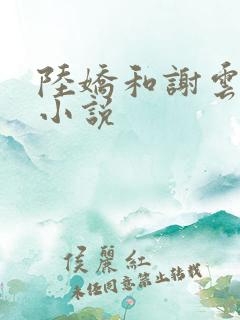 陸嬌和謝雲
小說
侯麗紅
未經同意禁止轉載